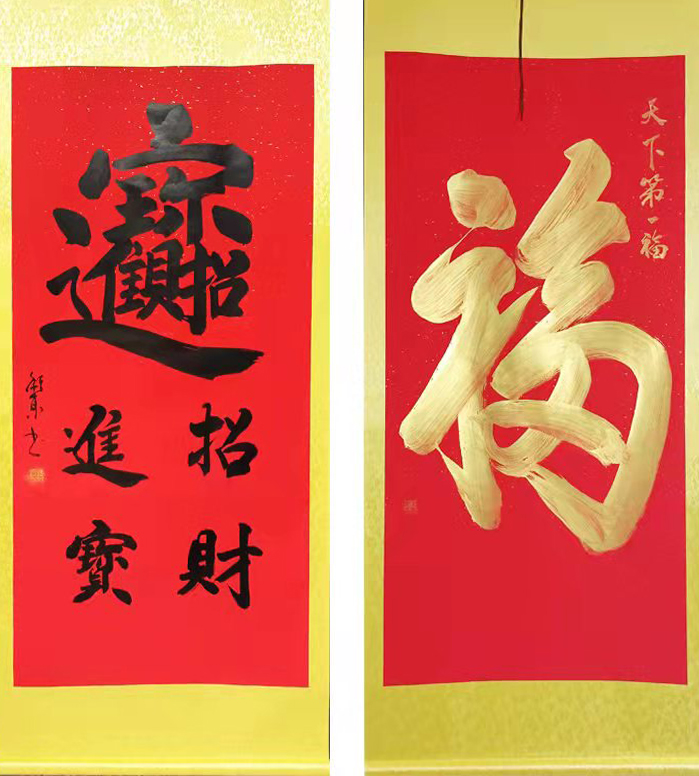 招財
進寶
天下第一福
福